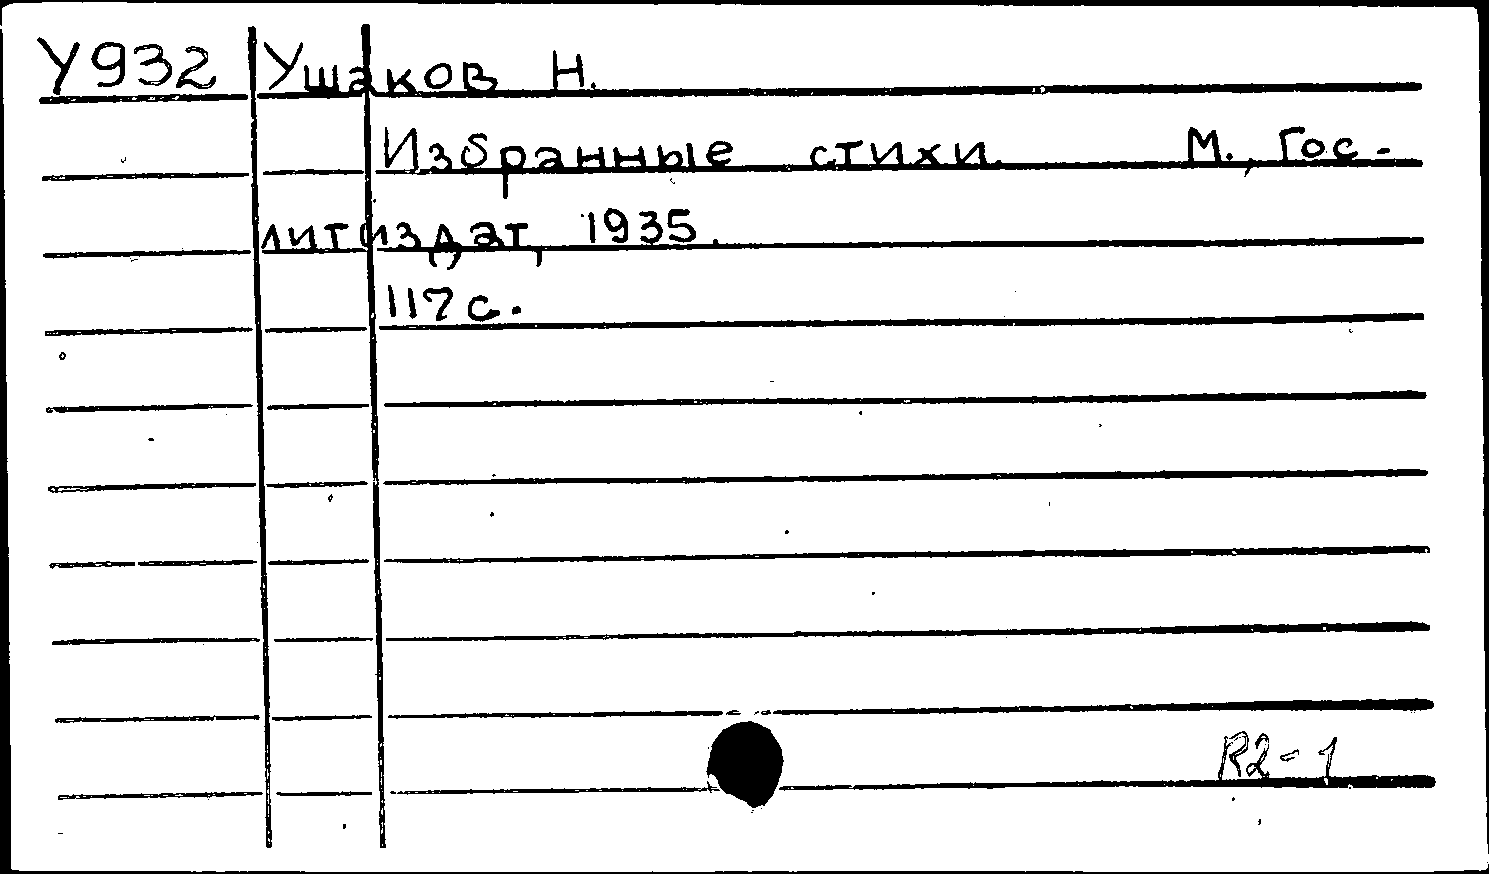 У932 Ушаков Н.
Избранные стихи. М., Гос-
литиздат, 1935.
117 с.
R2-1